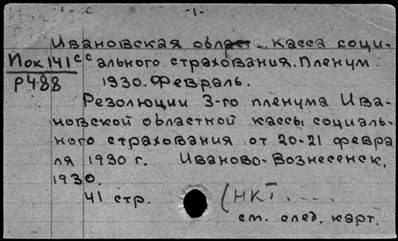 Ивановская област. касса соци-
Пок 141 сс ального страхования. Пленум
Р488 1930. Февраль.
Резолюции 3-го пленума Ива-
новской областной кассы социаль-
ного страхования от 20-21 февра
ля 1930 г. Иваново-Вознесенск,
1930.
41 стр. (НКТ....
см. след. карт.